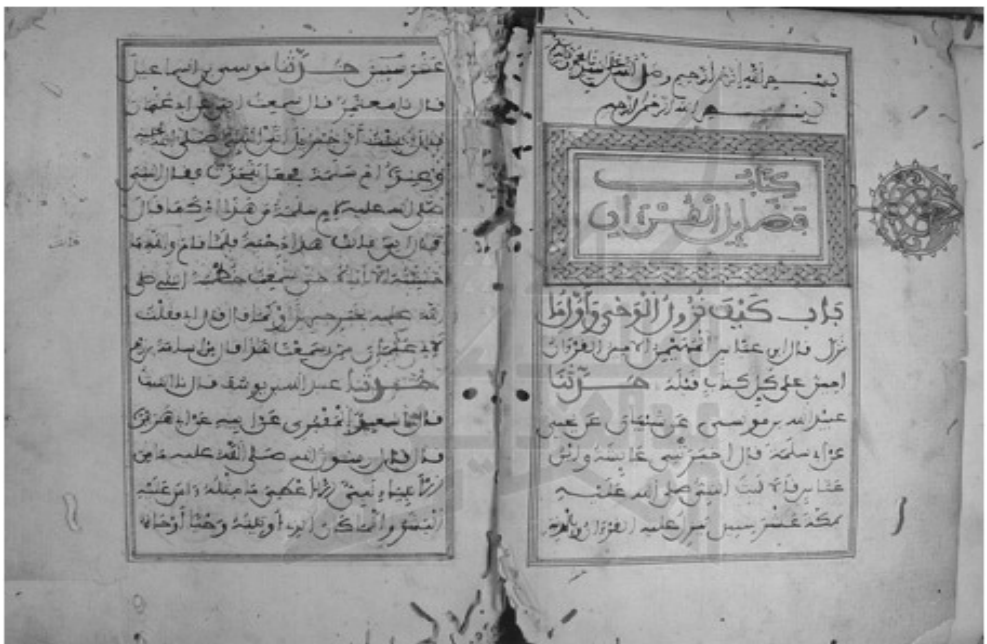 بسم الله الرحمن الرحيم وصلى الله على سيدنا محمد
بسم الله الرحمن الرحيم
كتاب
فضايل القرءان
باب كيف نزول الوحي وأول ما
نزل قال ابن عباس المهيمن الامين القرءان
امين على كل كتاب قبله حدثنا
عبيد الله بن موسى عن شيبان عن يحيى
عن ابي سلمة قال اخبرتني عايشة وابن
عباس قالا لبث النبي صلى الله عليه
بمكة عشر سنين ينزل عليه القرءان وبالمدينة
عشر سنين حدثنا موسى بن اسماعيل
قال نا معتمر قال سمعت ابي عن ابي عثمان
قال انبئت ان جبريل اتى النبي صلى الله عليه
وعنده ام سلمة فجعل يتحدث فقال النبي
صلى الله عليه لام سلمة من هذا او كما قال
قالت هذا دحية فلما قام والله ما
حسبته الا اياه حتى سمعت خطبة النبي صلى
الله عليه بخبر جبريل او كما قال قال ابي فقلت
لابي عثمان ممن سمعت هذا قال من اسامة بن زيد
حدثنا عبد الله بن يوسف قال نا الليث
قال نا سعيد المقبري عن ابيه عن ابي هريرة
قال قال رسول الله صلى الله عليه ما من
الانبياء نبي الا اعطي ما مثله ءامن عليه
البشر وانما كان الذي اوتيته وحيا اوحاه